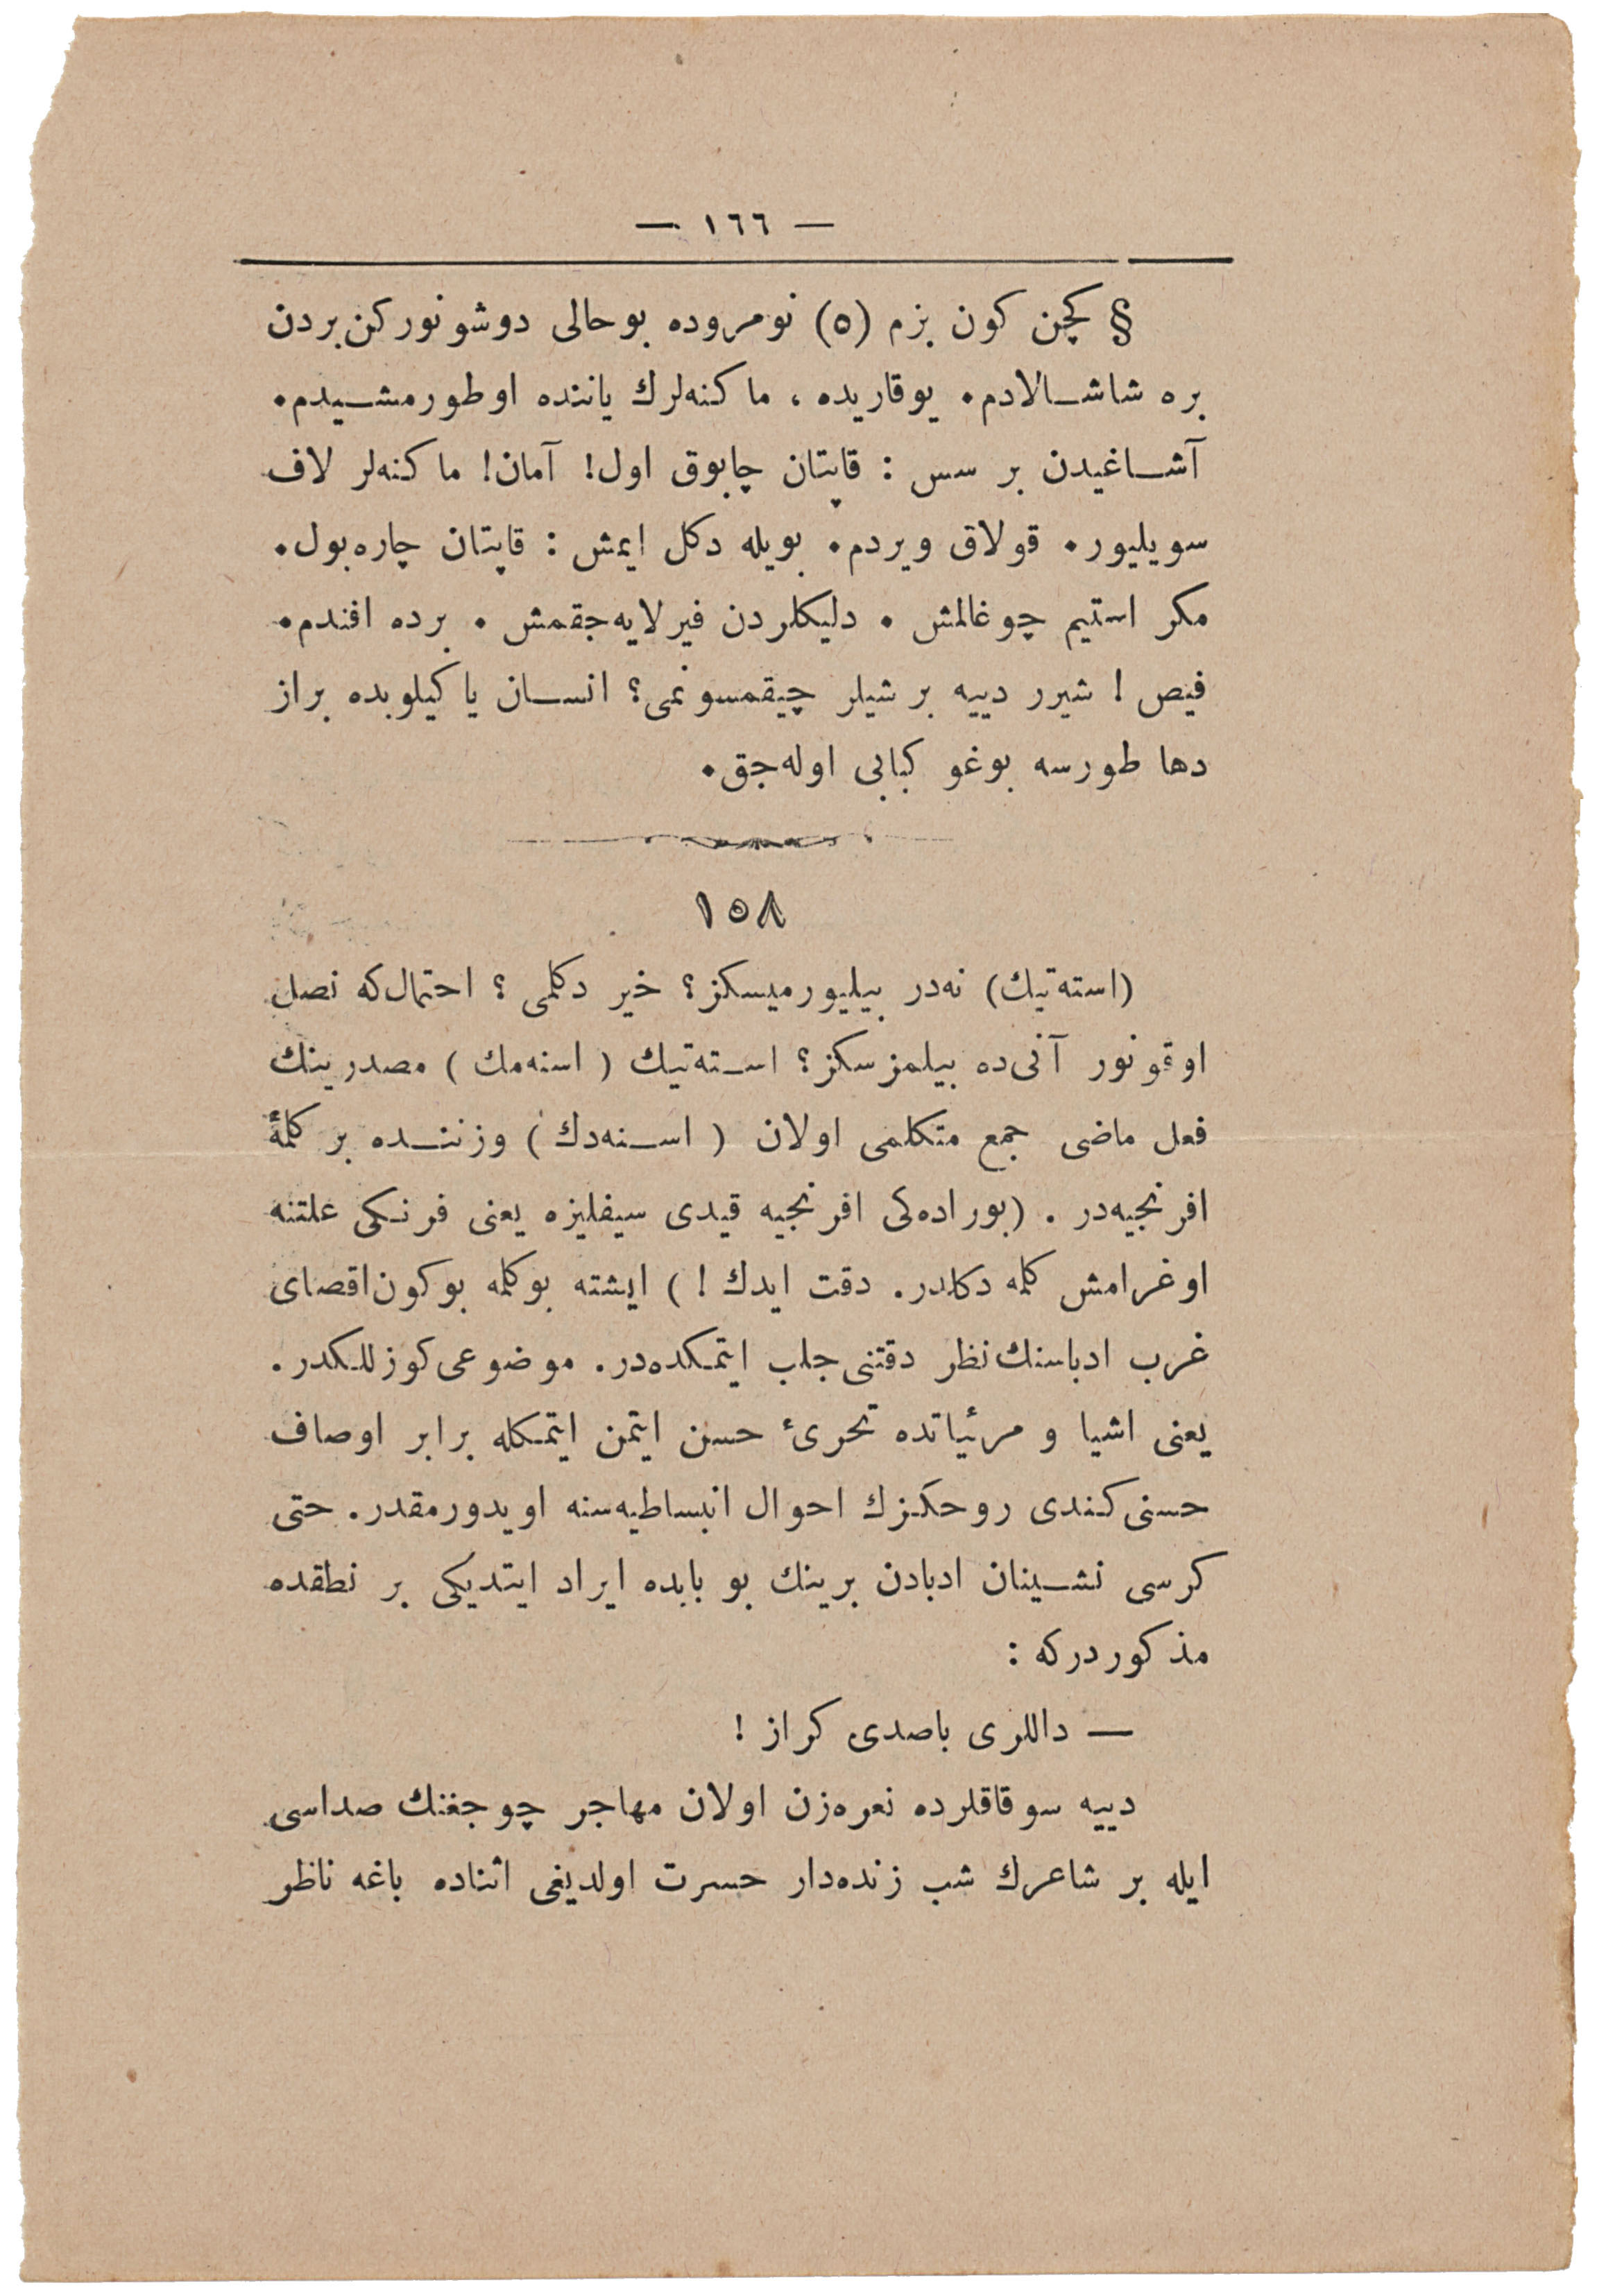 — ١٦٦ —
§ كچن كون بزم (٥) نومروده بوحالی دوشونوركن بردن
بره شاشالادم. یوقاریده ، ماكنه‌لرك یاننده اوطورمشیدم.
آشاغیدن بر سس : قاپتان چابوق اول! آمان! ماكنه‌لر لاف
سویلیور. قولاق ویردم. بویله دكل ایمش : قاپتان چاره‌بول.
مكر استیم چوغالمش . دلیكلردن فیرلایه‌جقمش . برده افندم.
فیص ! شیرر دییه بر شیلر چیقمسونمی؟ انسان یاكیلوبده براز
دها طورسه بوغو كبابی اوله‌جق.
١٥٨
(استه‌تیك) نه‌در بیلیورمیسكز؟ خیر دكلمی ؟ احتمال‌كه نصل
اوقونور آنی‌ده بیلمزسكز؟ استه‌تیك ( اسنه‌مك ) مصدرینك
فعل ماضی جمع متكلمی اولان ( اسنه‌دك ) وزننده بر كلمهٔ
افرنجیه‌در . (بوراده‌كی افرنجیه قیدی سیفلیزه یعنی فرنكی علتنه
اوغرامش كلمه دكلدر. دقت ایدك ! ) ایشته بوكلمه بوكون‌اقصای
غرب ادباسنك‌نظر دقتنی‌جلب ایتمكده‌در. موضوعی‌كوزللكدر.
یعنی اشیا و مرئیاتده تحریٔ حسن ایتمن ایتمكله برابر اوصاف
حسنی‌كندی روحكزك احوال انبساطیه‌سنه اویدورمقدر. حتی
كرسی نشینان ادبادن برینك بو بابده ایراد ایتدیكی بر نطقده
مذكوردركه :
— داللری باصدی كراز !
دییه سوقاقلرده نعره‌زن اولان مهاجر چوجغنك صداسی
ایله بر شاعرك شب زنده‌دار حسرت اولدیغی اثناده باغه ناظر